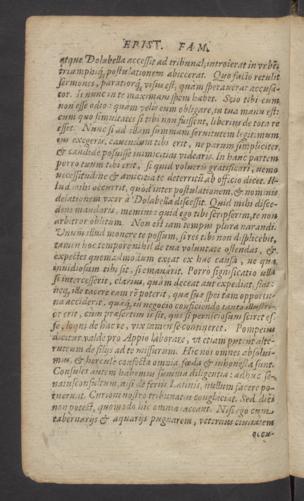 EPIST. FAM.
atque Dolabella accessit ad tribunal, introierat in vrbem
triumphiq́; postulationem abiecerat. Quo facto retulit
sermones, paratiorq́; visus est, quam sperauerat accusa-
tor. Is nunc in te maximam spem habet. Scio tibi eum
non esse odio: quàm velis eum obligare, in tua manu est:
cum quo simultates si tibi non fuissent, liberum de tota re
esset. Nunc si ad illam summam seruitutem legitimum
eum exegeris, cauendum tibi erit, ne parum simpliciter,
& candide posuisse inimicitias videaris. In hanc partem
porro tutum tibi erit, si quid volueris gratificari, nemo
necessitudine & amicitia te deterritũ ab officio dicet. Il-
lud mihi occurrit, quòd inter postulationem, & nominis
delationem vxor à Dolabella discessit. Quid mihi disce-
dens mandaris, memini: quid ego tibi scripserim, te non
arbitror oblitum. Non est iam tempus plura narandi.
Vnum illud monere te possum, si res tibi non displicebit,
tamen hoc tempore nihil de tua voluntate ostendas, &
expectes quemadmodum exeat ex hac causa, ne qua
inuidiosum tibi sit, si emanarit. Porro significatio vlla
si intercesserit, clarius, quàm deceat aut expediat, fiat:
neq́; ille tacere eam rẽ poterit, quæ suæ spei tam opportu-
na acciderit, quæq́; in negocio conficiendo
or erit, cùm præsertim is sit, qui si perniciosum sciret es-
se, loqui de hac re, vix tamen se contineret. Pompeius
dicitur valde pro Appio laborare, vt etiam putent alte-
rutrum de filijs ad te missurum. Hic nos omnes absolui-
mus, & hercule consæpta omnia fœda & inhonesta sunt.
Consules autem habemus summa diligentia: adhuc se-
natusconsultum, nisi de ferijs Latinis, nullum facere po-
tuerunt. Curioni nostro tribunatus conglaciat. Sed dici
non potest, quomodo hic omnia iaceant. Nisi ego cum
tabernarijs & aquarijs pugnarem, veternus ciuitatem
occu-